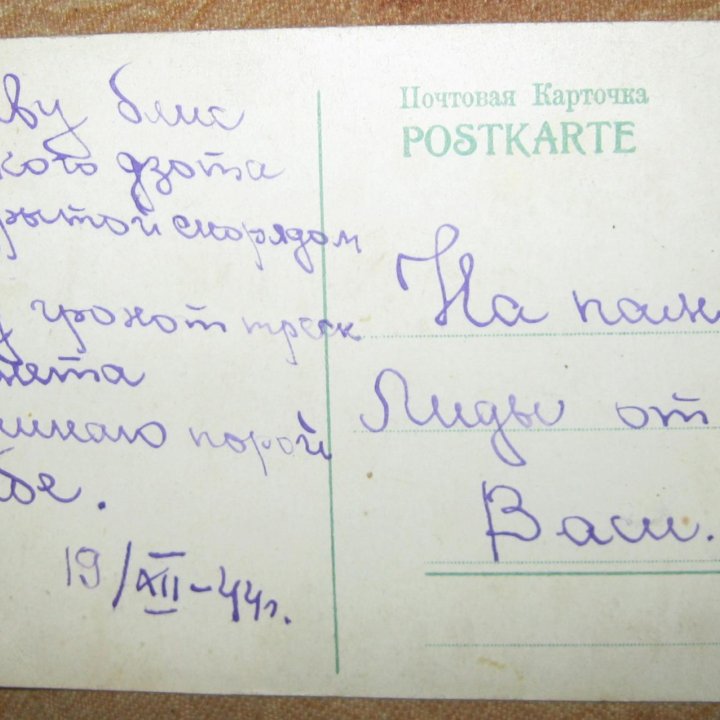 аву блис
кого дзота
рытой снорядом
у грохот треск
мета
минаю порой
бе.
19/XII-44г.
Почтовая Карточка
POSTKARTE
На пам
Лиды от
Васи.